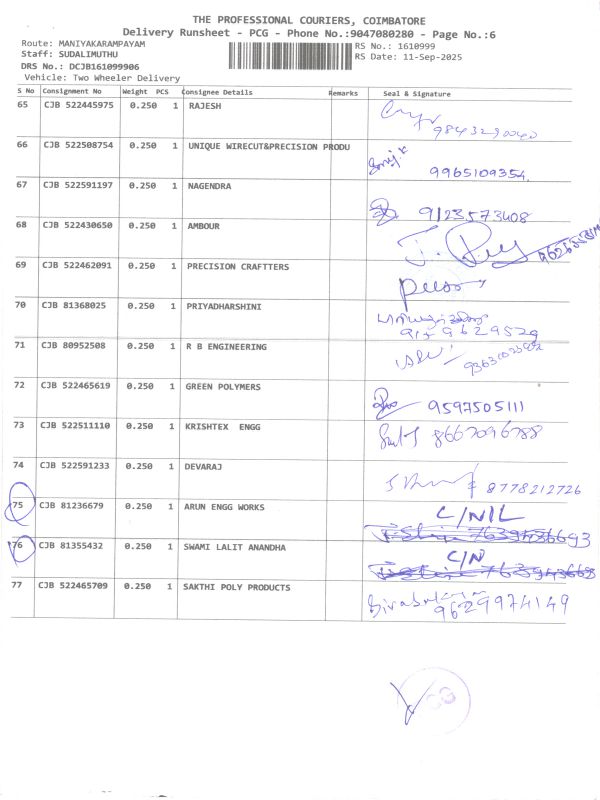 THE PROFESSIONAL COURIERS, COIMBATORE
Delivery Runsheet - PCG - Phone No.:9047080280 - Page No.:6
Route: MANIYAKARAMPAYAM
RS No.: 1610999
Staff: SUDALIMUTHU
RS Date: 11-Sep-2025
DRS No.: DCJB161099906
Vehicle: Two Wheeler Delivery
S No Consignment No Weight PCS Consignee Details Remarks Seal & Signature
65 CJB 522445975 0.250 1 RAJESH
9843290040
66 CJB 522508754 0.250 1 UNIQUE WIRECUT&PRECISION PRODU
9965109354.
67 CJB 522591197 0.250 1 NAGENDRA
9123573408
68 CJB 522430650 0.250 1 AMBOUR
69 CJB 522462091 0.250 1 PRECISION CRAFTTERS
70 CJB 81368025 0.250 1 PRIYADHARSHINI
71 CJB 80952508 0.250 1 R B ENGINEERING
72 CJB 522465619 0.250 1 GREEN POLYMERS
9597505111
73 CJB 522511110 0.250 1 KRISHTEX ENGG
8667096788
74 CJB 522591233 0.250 1 DEVARAJ
8778212726
75 CJB 81236679 0.250 1 ARUN ENGG WORKS
C/NIL
76 CJB 81355432 0.250 1 SWAMI LALIT ANANDHA
C/N
77 CJB 522465709 0.250 1 SAKTHI POLY PRODUCTS
9629974149
CG